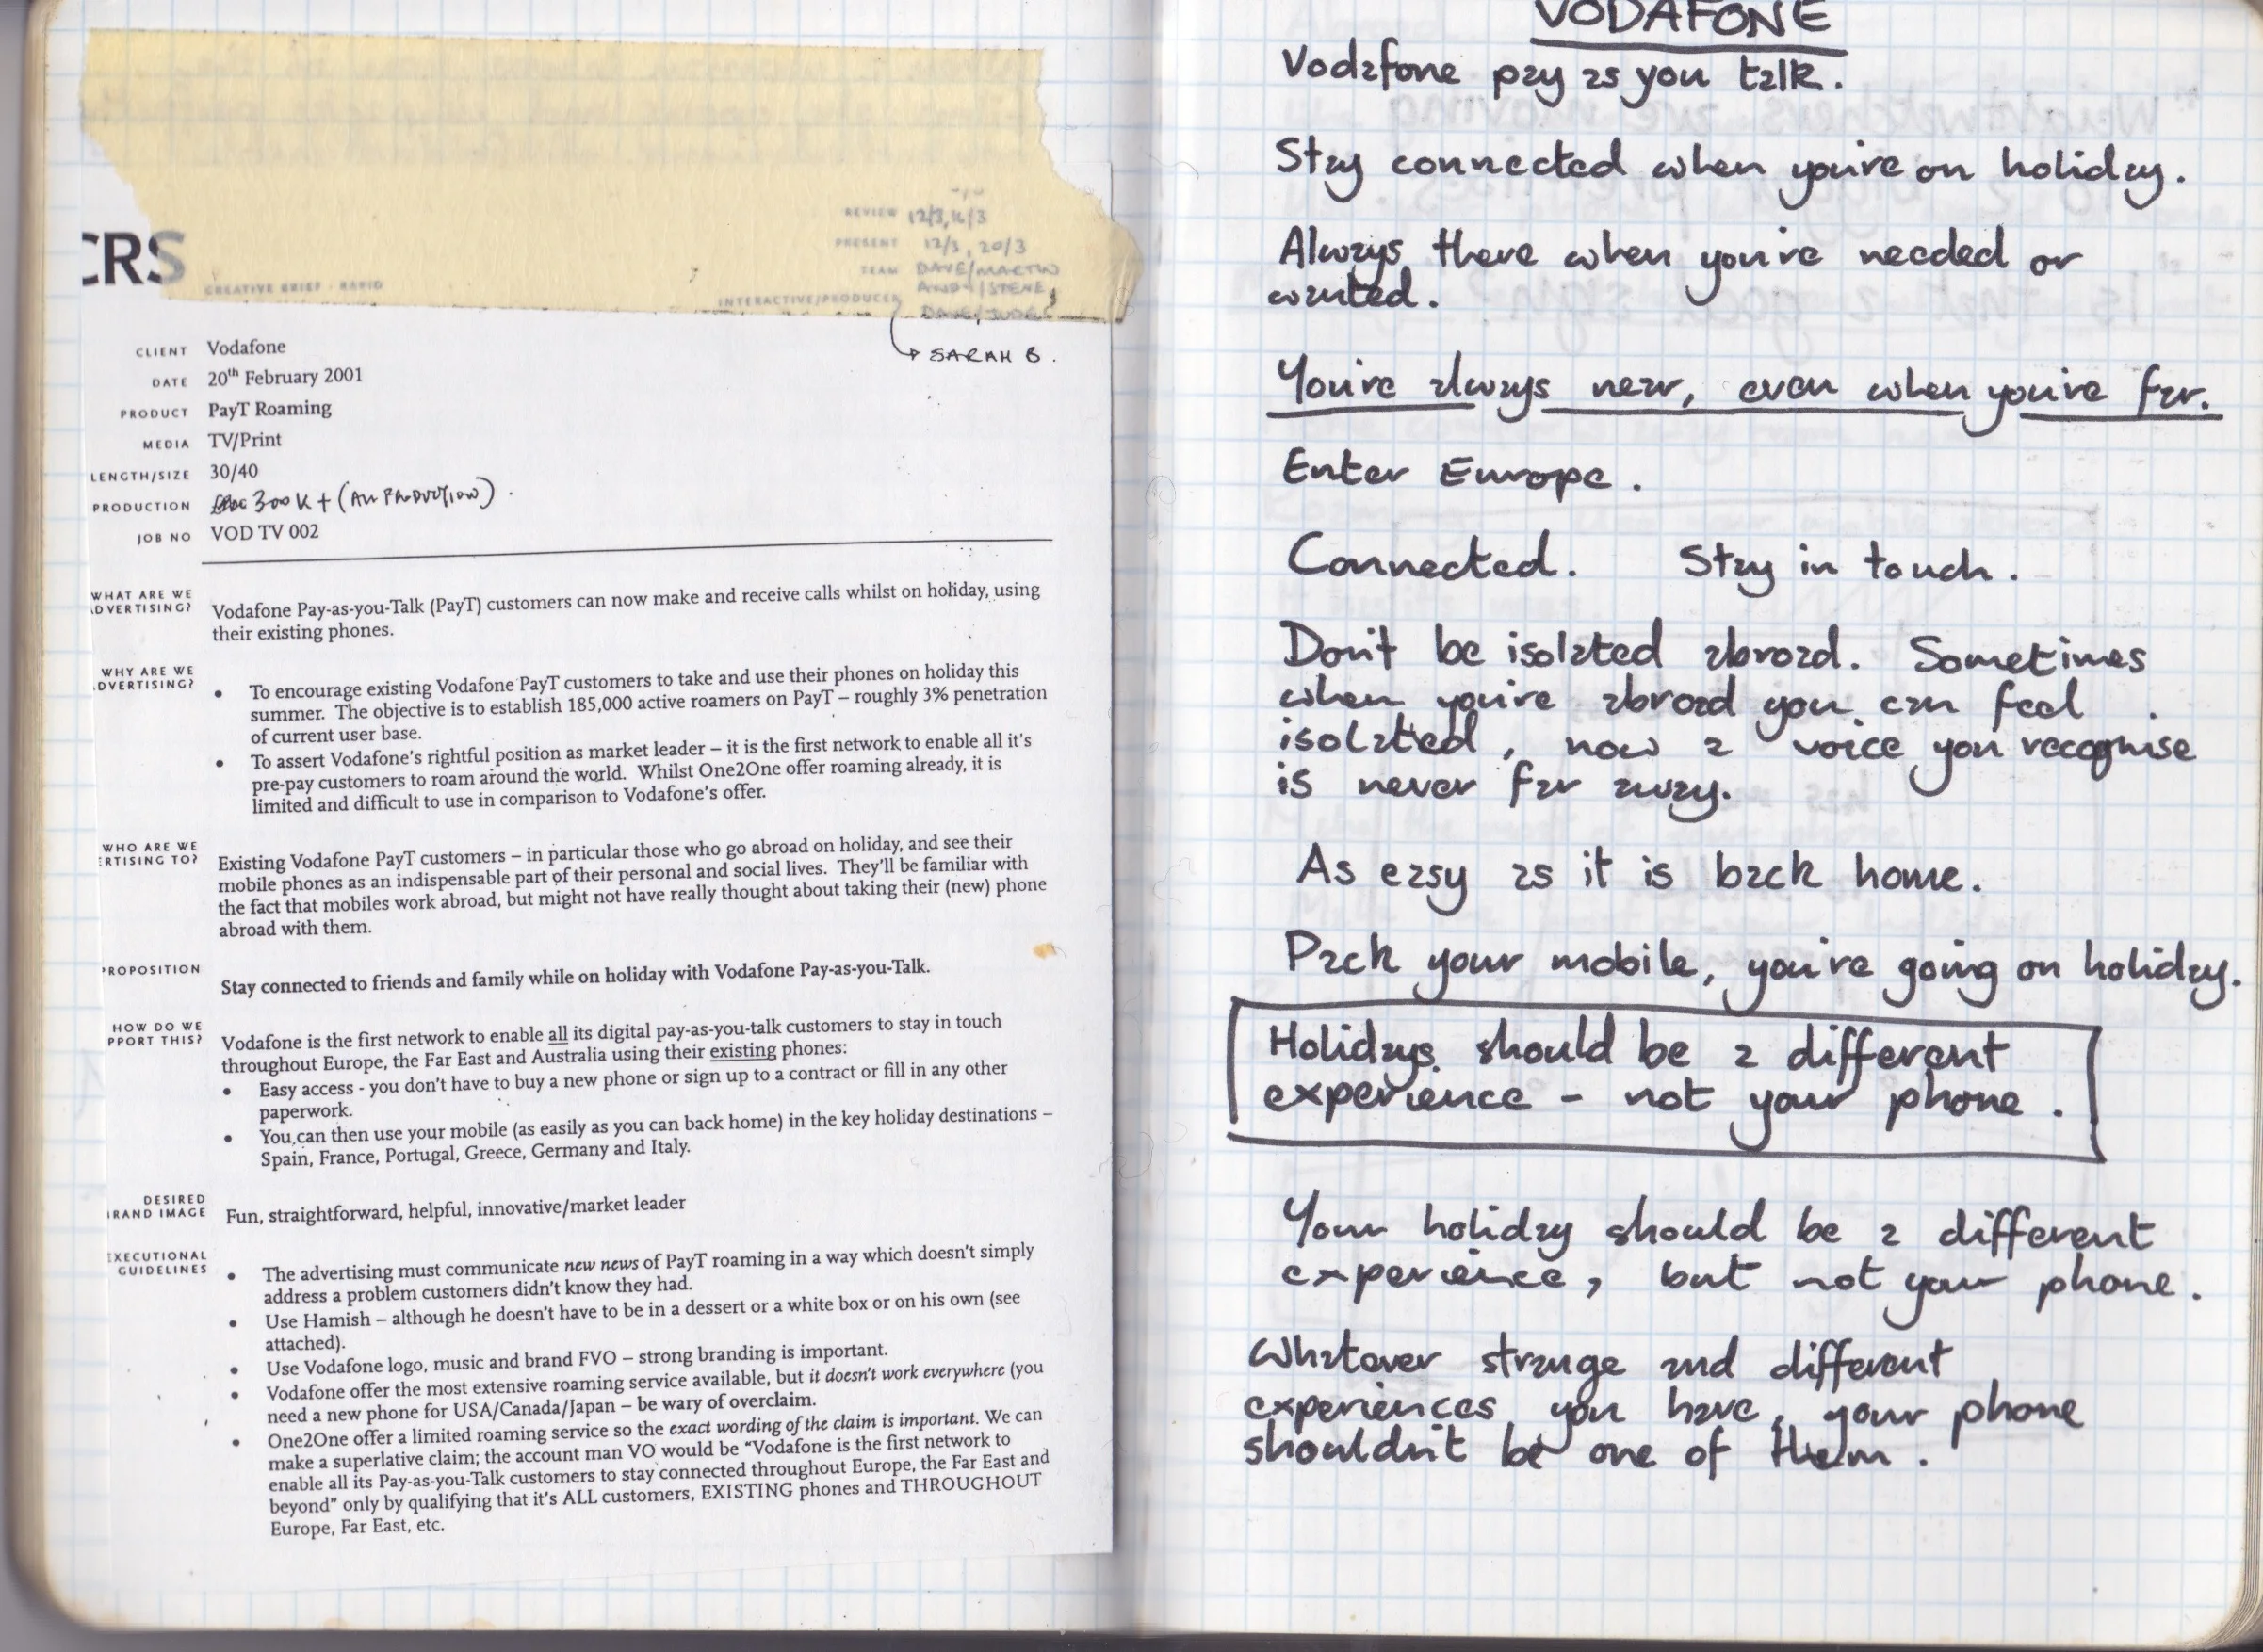 CRS
CREATIVE BRIEF - RAPID
REVIEW 12/3, 16/3
PRESENT 12/3, 20/3
TEAM DAVE/MARTIN
ANDY/STEVE,
INTERACTIVE/PRODUCER DAVE/JUDE
SARAH B.
CLIENT Vodafone
DATE 20th February 2001
PRODUCT PayT Roaming
MEDIA TV/Print
LENGTH/SIZE 30/40
PRODUCTION 300K + (ALL PRODUCTION).
JOB NO VOD TV 002
WHAT ARE WE
DVERTISING? Vodafone Pay-as-you-Talk (PayT) customers can now make and receive calls whilst on holiday, using
their existing phones.
WHY ARE WE
DVERTISING?
• To encourage existing Vodafone PayT customers to take and use their phones on holiday this
summer. The objective is to establish 185,000 active roamers on PayT – roughly 3% penetration
of current user base.
• To assert Vodafone's rightful position as market leader – it is the first network to enable all it's
pre-pay customers to roam around the world. Whilst One2One offer roaming already, it is
limited and difficult to use in comparison to Vodafone's offer.
WHO ARE WE
ERTISING TO? Existing Vodafone PayT customers – in particular those who go abroad on holiday, and see their
mobile phones as an indispensable part of their personal and social lives. They'll be familiar with
the fact that mobiles work abroad, but might not have really thought about taking their (new) phone
abroad with them.
PROPOSITION Stay connected to friends and family while on holiday with Vodafone Pay-as-you-Talk.
HOW DO WE
PPORT THIS? Vodafone is the first network to enable all its digital pay-as-you-talk customers to stay in touch
throughout Europe, the Far East and Australia using their existing phones:
• Easy access - you don't have to buy a new phone or sign up to a contract or fill in any other
paperwork.
• You can then use your mobile (as easily as you can back home) in the key holiday destinations –
Spain, France, Portugal, Greece, Germany and Italy.
DESIRED
RAND IMAGE Fun, straightforward, helpful, innovative/market leader
EXECUTIONAL
GUIDELINES
• The advertising must communicate new news of PayT roaming in a way which doesn't simply
address a problem customers didn't know they had.
• Use Hamish – although he doesn't have to be in a dessert or a white box or on his own (see
attached).
• Use Vodafone logo, music and brand FVO – strong branding is important.
• Vodafone offer the most extensive roaming service available, but it doesn't work everywhere (you
need a new phone for USA/Canada/Japan – be wary of overclaim.
• One2One offer a limited roaming service so the exact wording of the claim is important. We can
make a superlative claim; the account man VO would be "Vodafone is the first network to
enable all its Pay-as-you-Talk customers to stay connected throughout Europe, the Far East and
beyond" only by qualifying that it's ALL customers, EXISTING phones and THROUGHOUT
Europe, Far East, etc.
VODAFONE
Vodafone pay as you talk.
Stay connected when you're on holiday.
Always there when you're needed or
wanted.
You're always near, even when you're far.
Enter Europe.
Connected. Stay in touch.
Don't be isolated abroad. Sometimes
when you're abroad you can feel
isolated, now a voice you recognise
is never far away.
As easy as it is back home.
Pack your mobile, you're going on holiday.
Holidays should be a different
experience - not your phone.
Your holiday should be a different
experience, but not your phone.
Whatever strange and different
experiences you have, your phone
shouldn't be one of them.